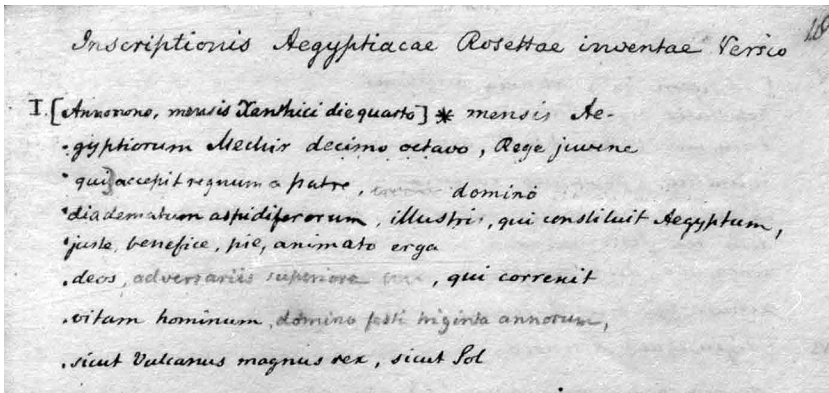 Inscriptionis Aegyptiacae Rosettae inventae Versio
I. [Anno nono, mensis Xanthici die quarto] * mensis Ae-
gyptiorum Mechir decimo octavo, Rege juvene
qui] accepit regnum a patre, domino
diadematum aspidiferorum, illustri, qui constituit Aegyptum,
juste, benefice, pie, animato erga
deos, adversariis superiore, qui correxit
vitam hominum, domino festi triginta annorum,
sicut Vulcanus magnus rex, sicut Sol